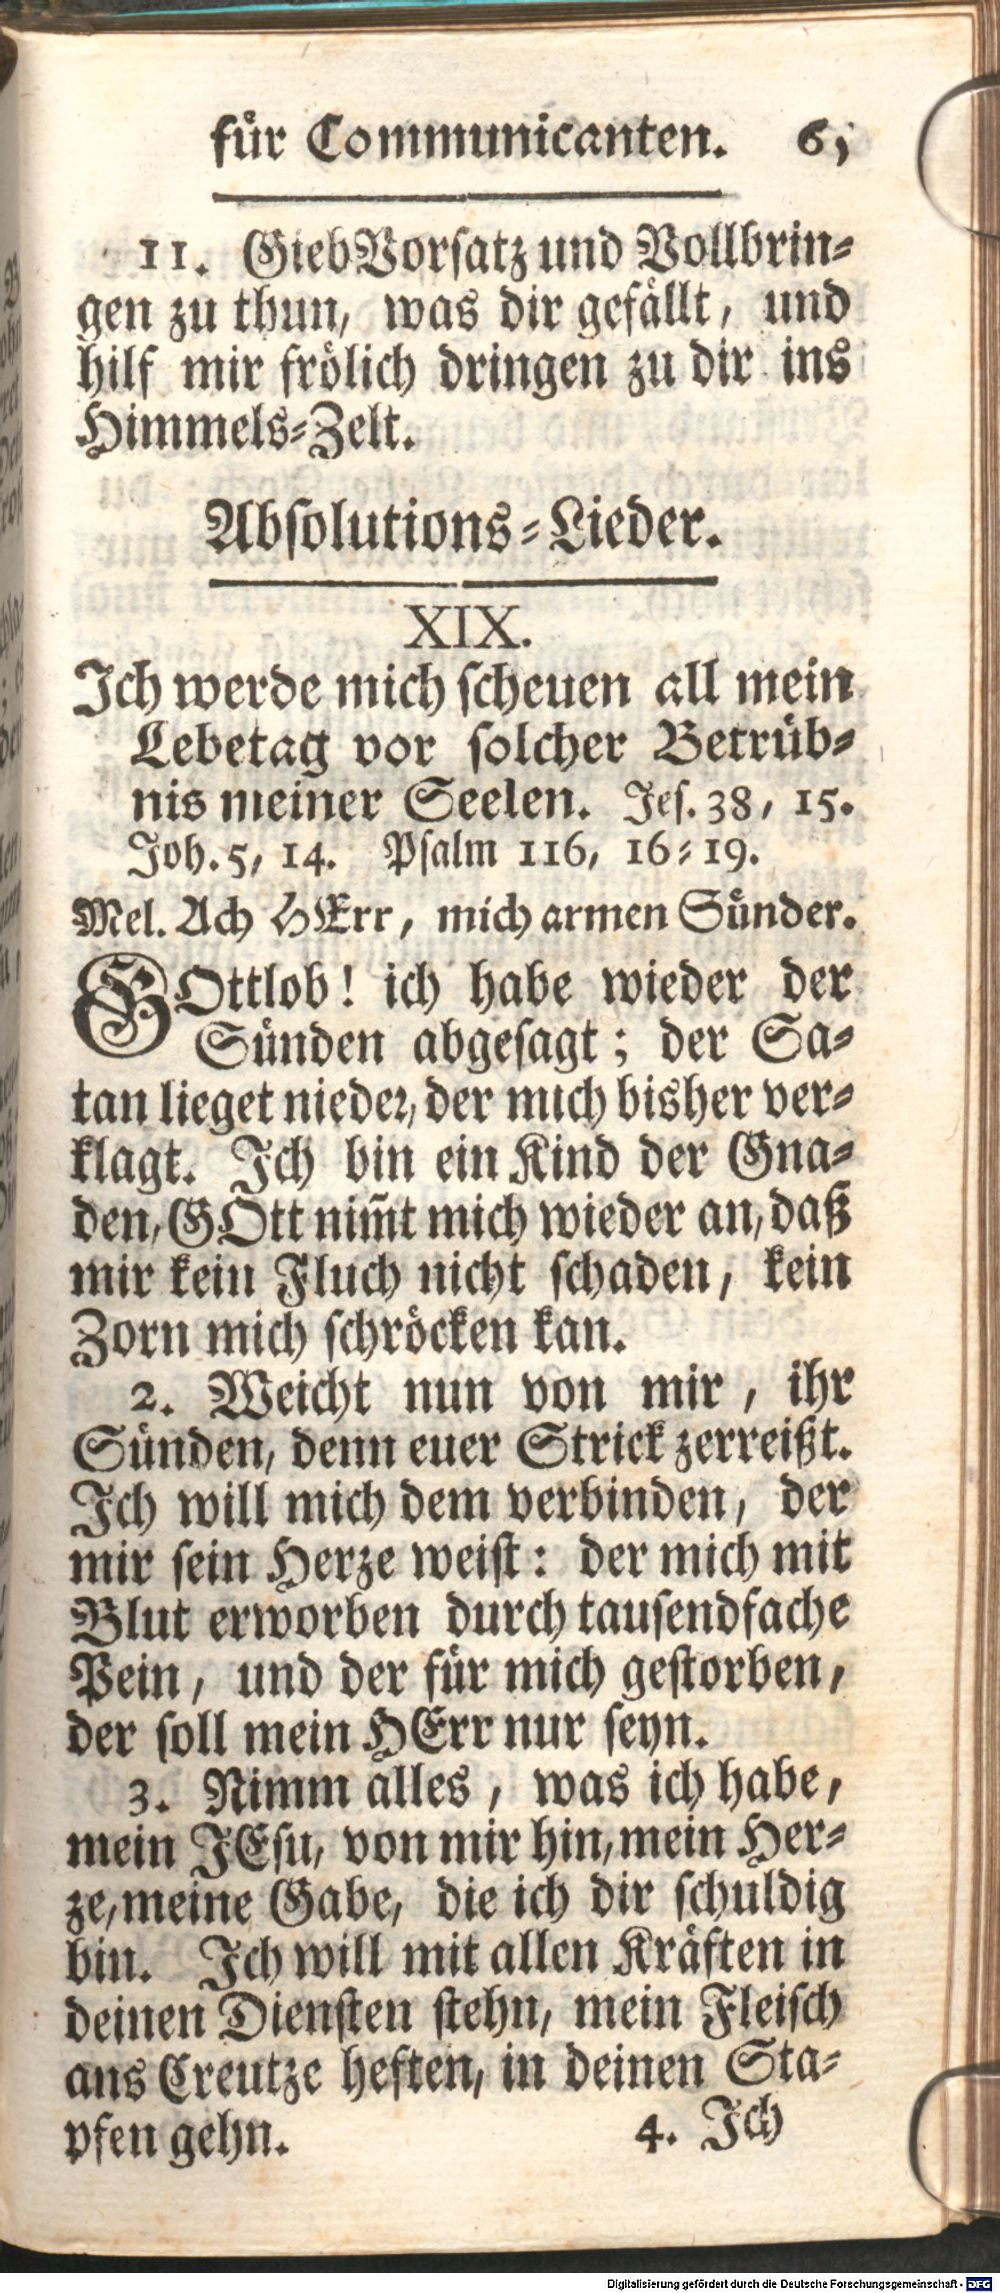 für Communicanten. 65
11. Gieb Vorsatz und Vollbrin-
gen zu thun, was dir gefällt, und
hilf mir frölich dringen zu dir ins
Himmels-Zelt.
Absolutions-Lieder.
XIX.
Ich werde mich scheuen all mein
Lebetag vor solcher Betrüb-
nis meiner Seelen. Jes. 38, 15.
Joh. 5, 14. Psalm 116, 16-19.
Mel. Ach HErr, mich armen Sünder.
GOttlob! ich habe wieder der
Sünden abgesagt; der Sa-
tan lieget nieder, der mich bisher ver-
klagt. Ich bin ein Kind der Gna-
den, GOtt nim̅t mich wieder an, daß
mir kein Fluch nicht schaden, kein
Zorn mich schröcken kan.
2. Weicht nun von mir, ihr
Sünden, denn euer Strick zerreißt.
Ich will mich dem verbinden, der
mir sein Herze weist: der mich mit
Blut erworben durch tausendfache
Pein, und der für mich gestorben,
der soll mein HErr nur seyn.
3. Nimm alles, was ich habe,
mein JEsu, von mir hin, mein Her-
ze, meine Gabe, die ich dir schuldig
bin. Ich will mit allen Kräften in
deinen Diensten stehn, mein Fleisch
ans Creutze heften, in deinen Sta-
pfen gehn. 4. Ich
Digitalisierung gefördert durch die Deutsche Forschungsgemeinschaft - DFG